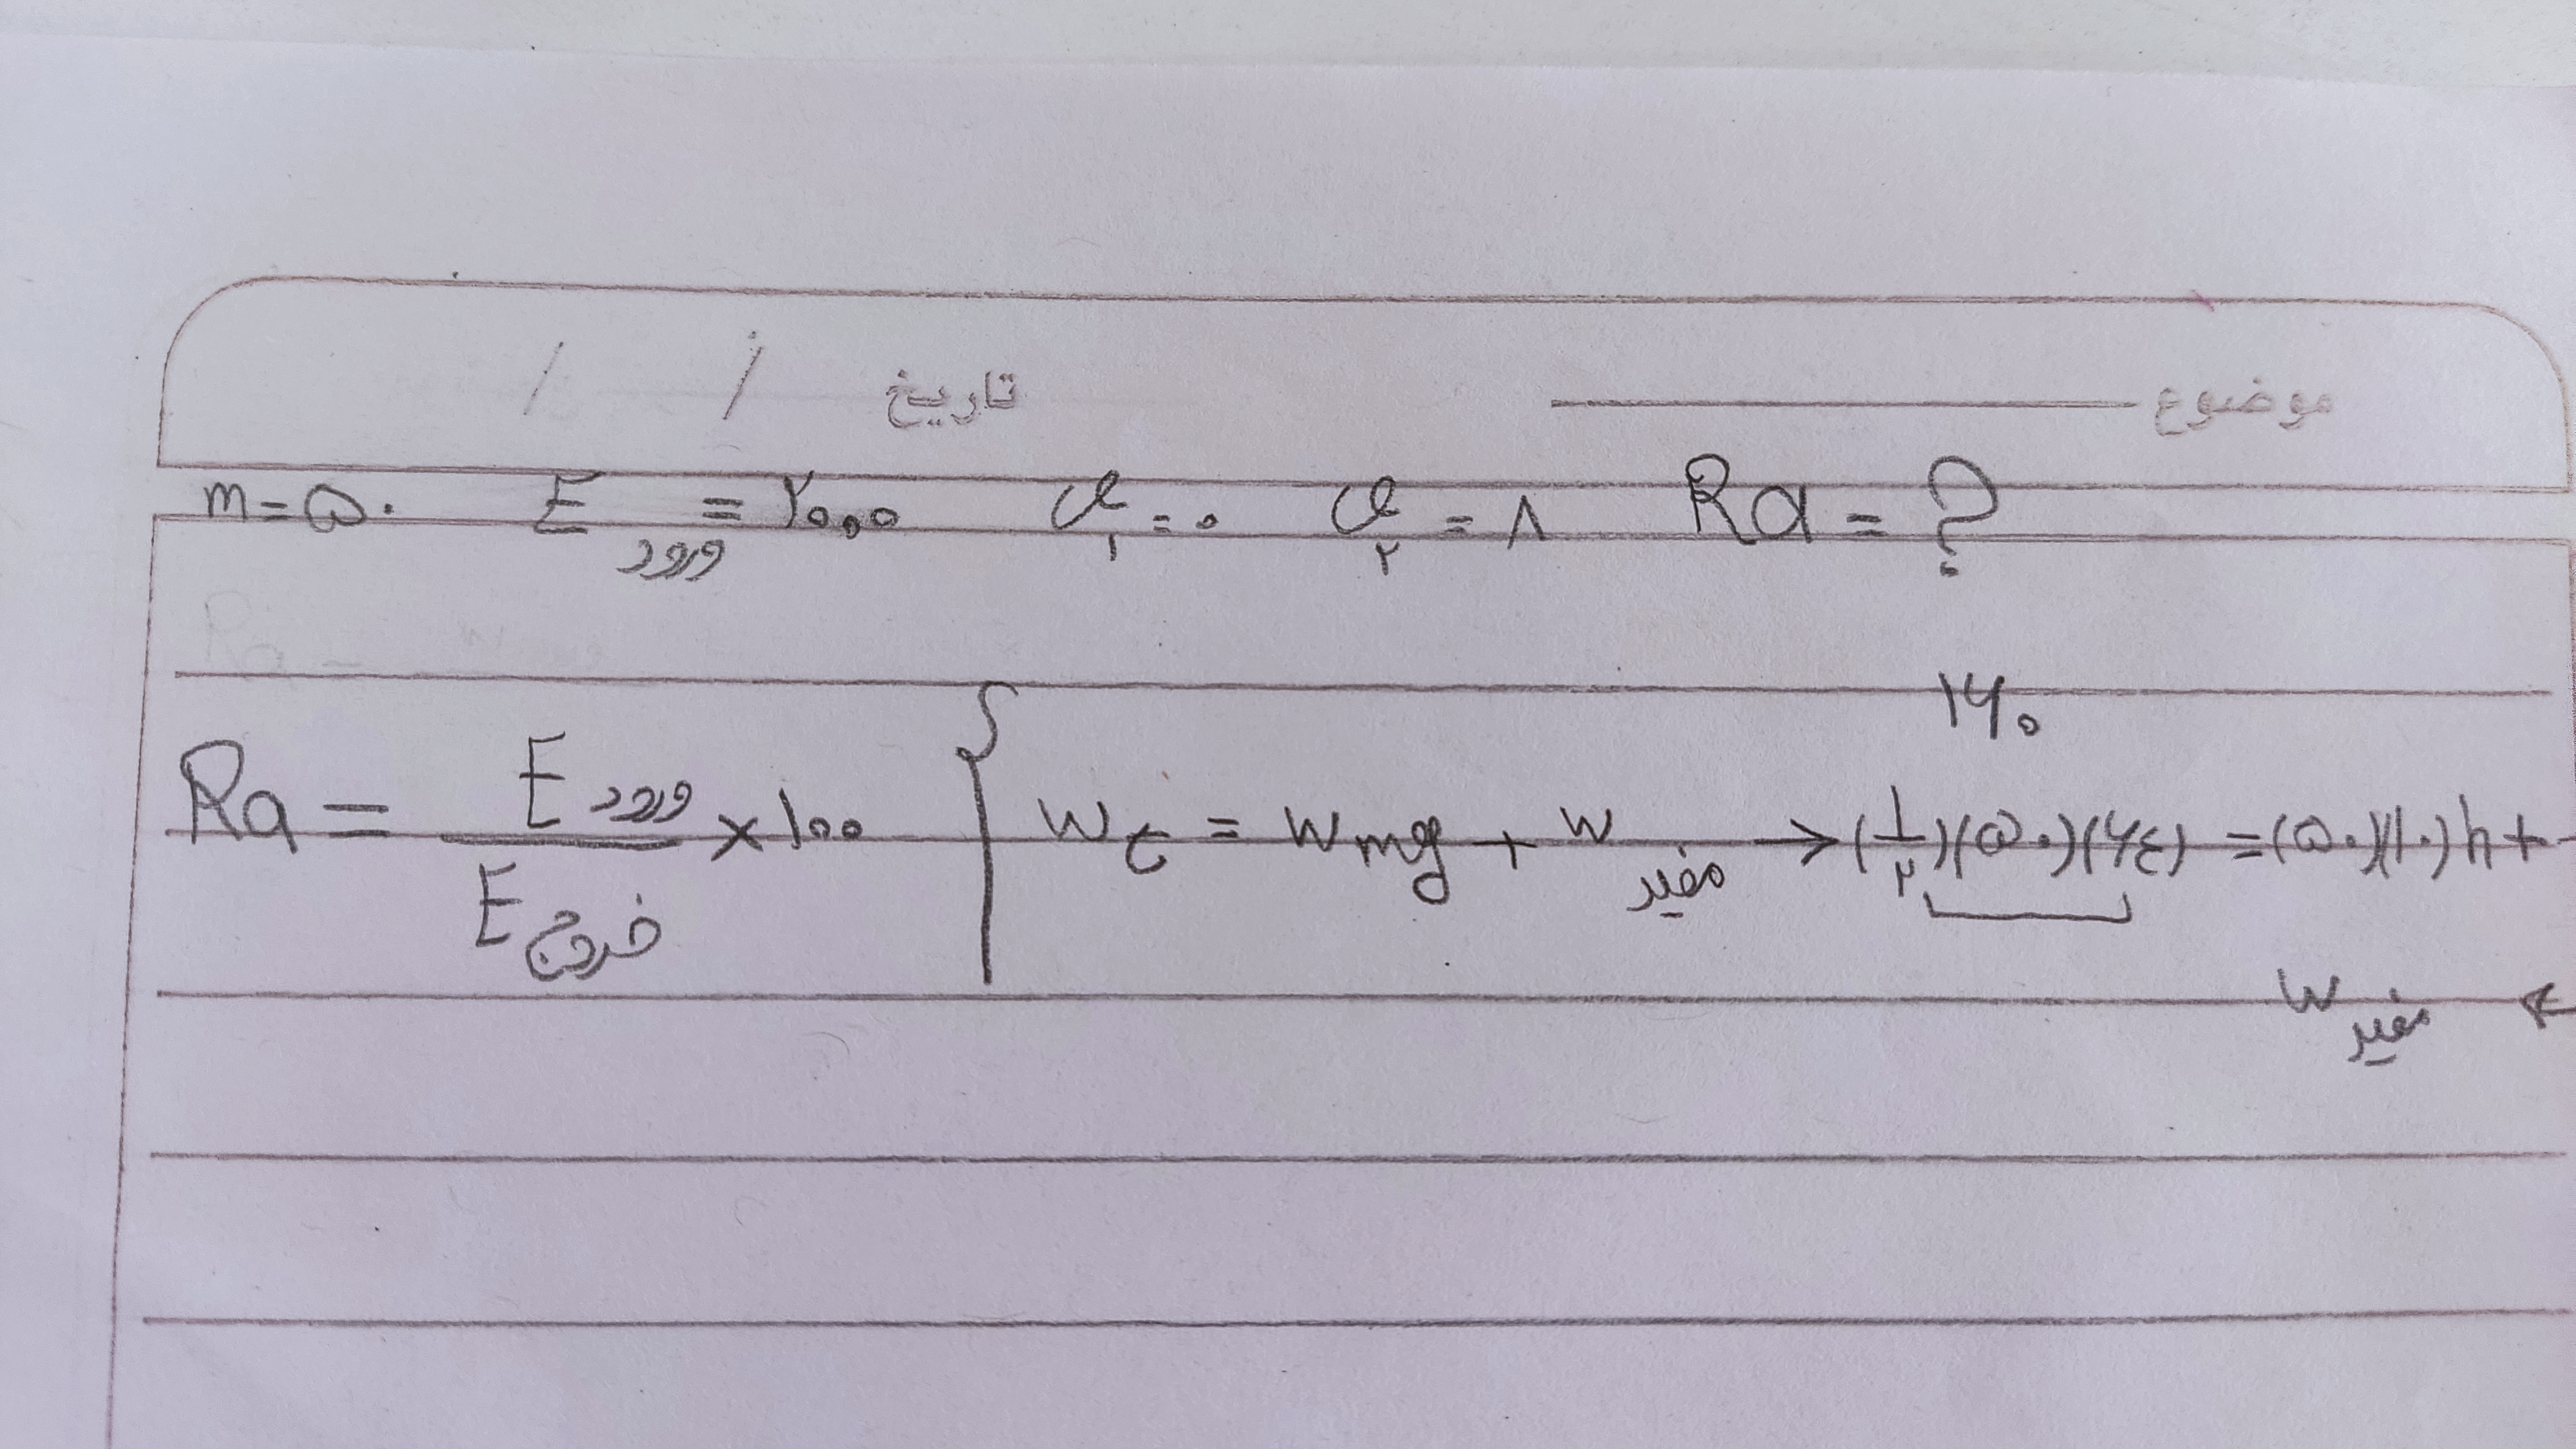 موضوع تاریخ / /
m=۵۰ E ورود = ۲۰۰۰ v₁=۰ v₂=۸ Ra=?
۱۶۰
Ra = E ورود / E خروج ×۱۰۰ { W t = W mg + W مفید → (۱/۲)(۵۰)(۶۴) =(۵۰)(۱۰)h+
W مفید ←